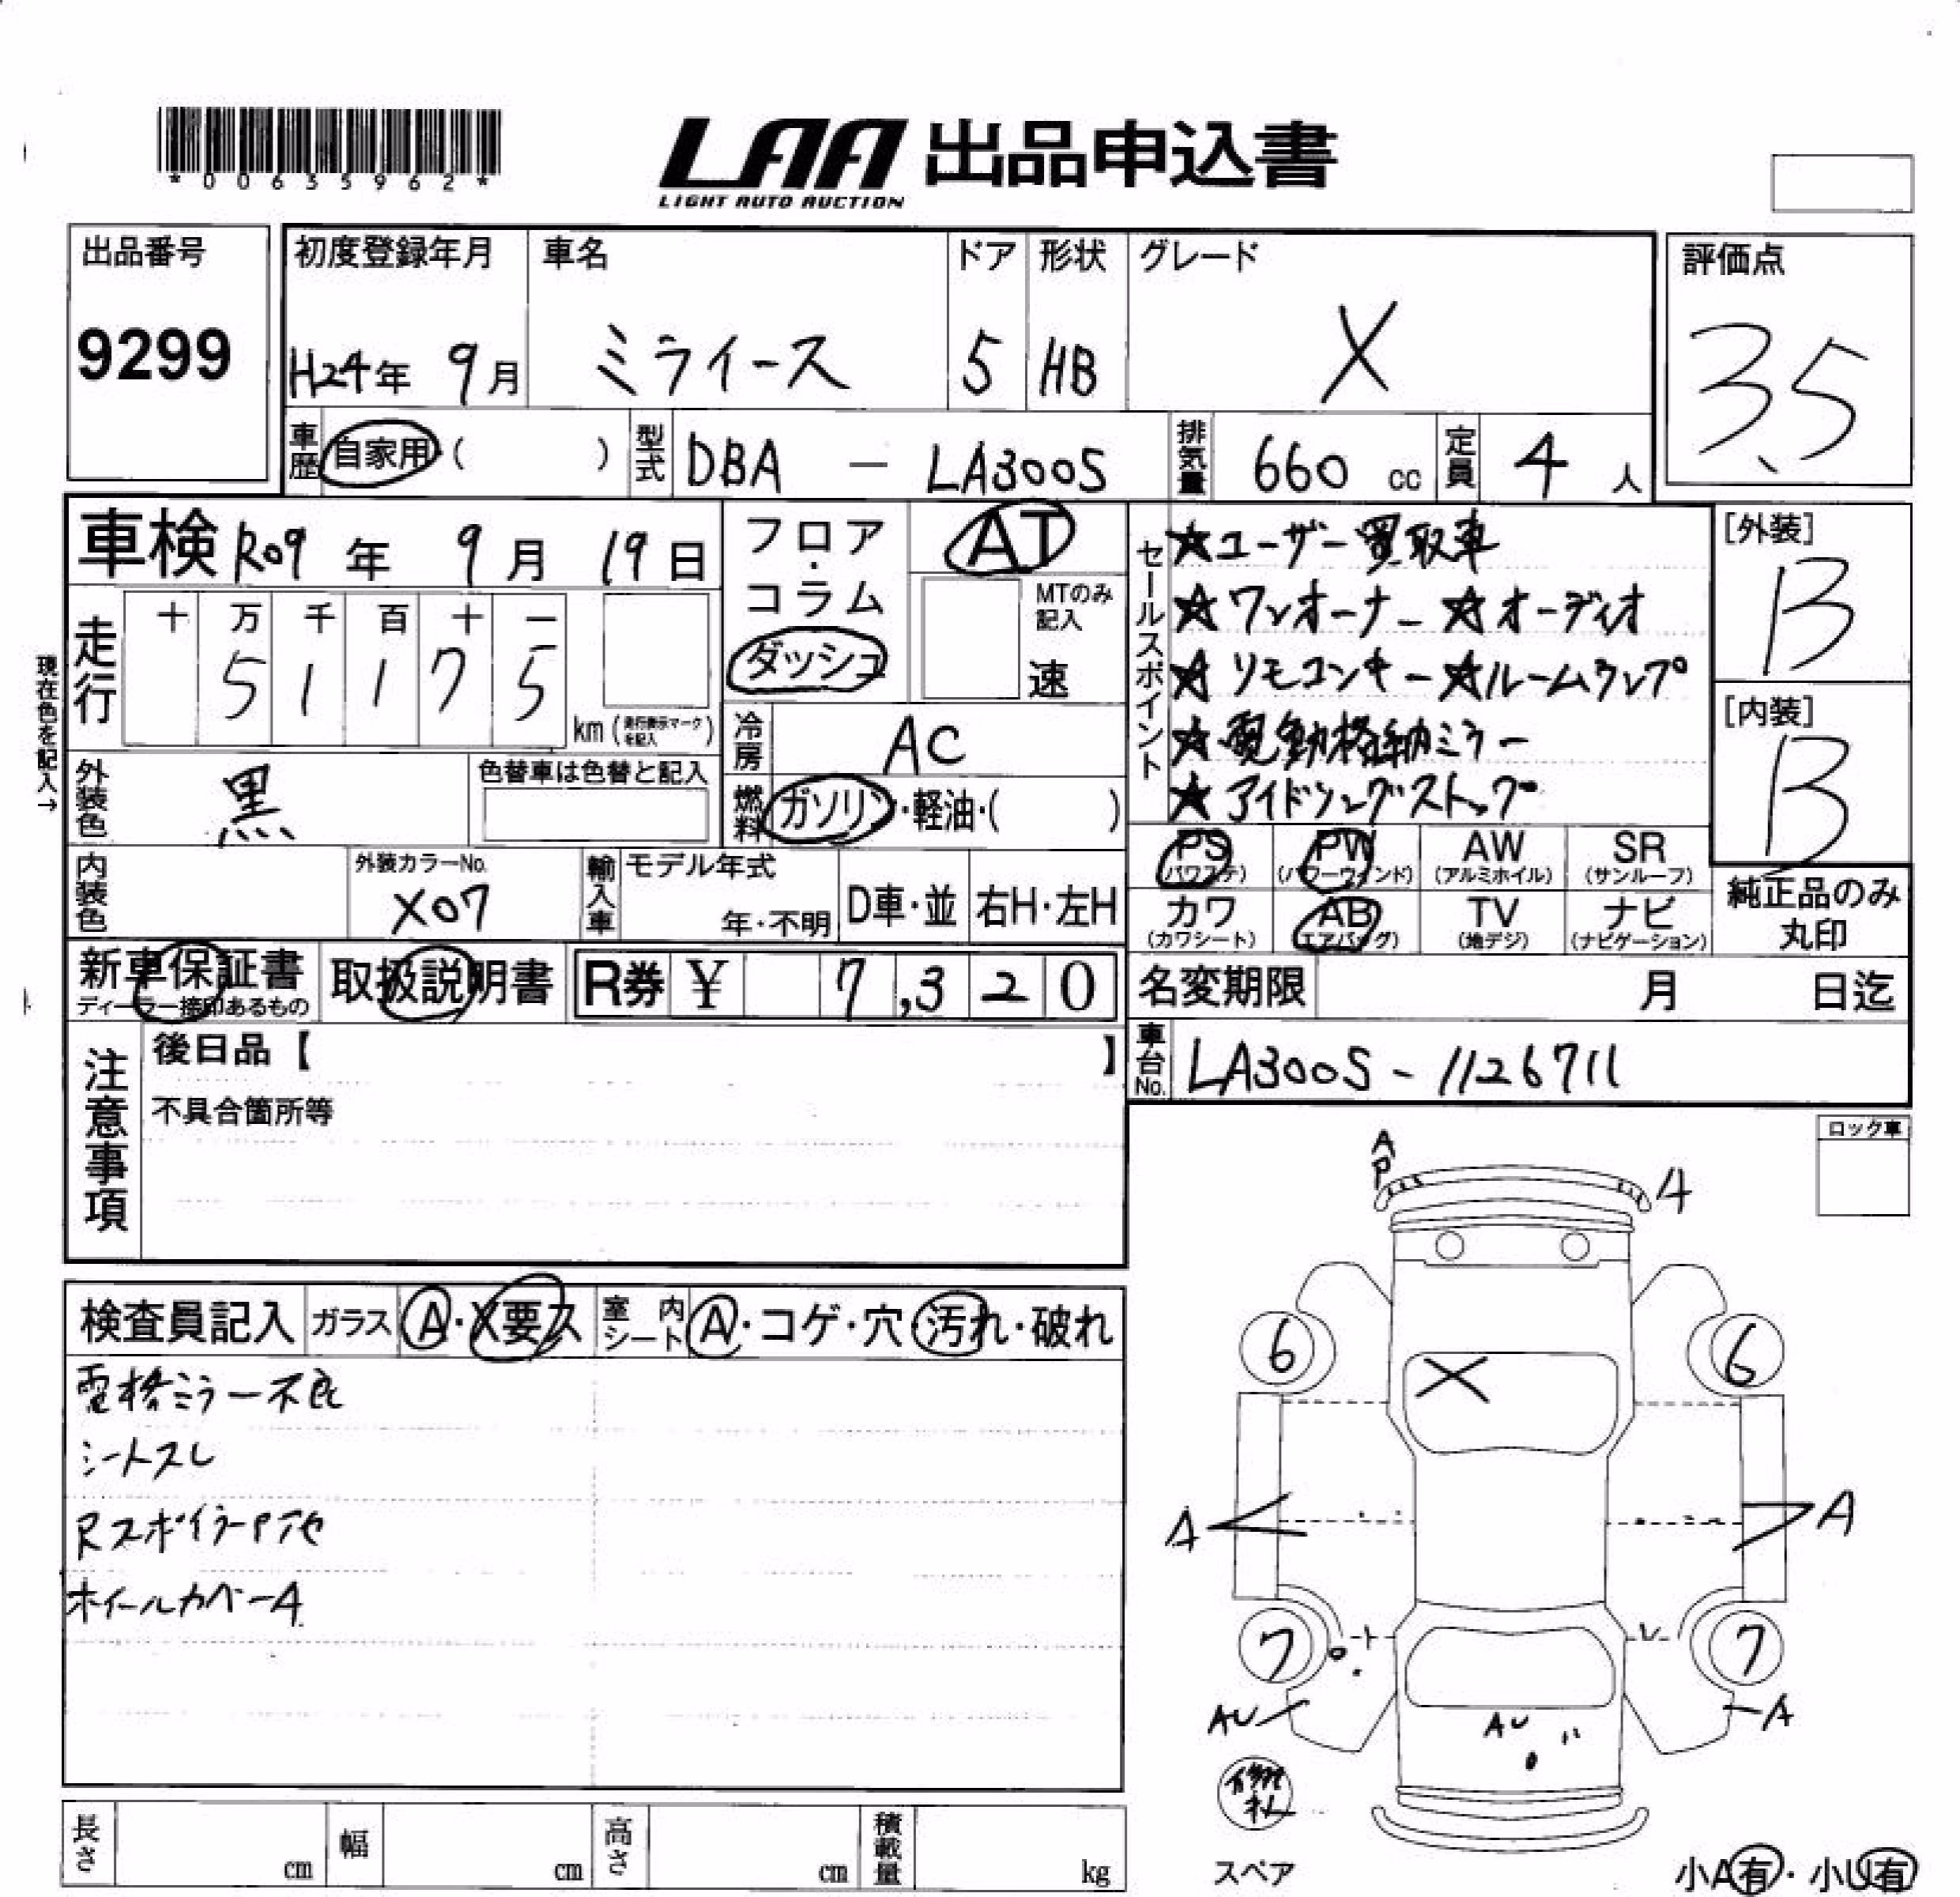 *00635962*
LAA 出品申込書
LIGHT AUTO AUCTION
出品番号
9299
初度登録年月
H24年 9月
車名
ミライース
ドア
5
形状
HB
グレード
X
評価点
3.5
車歴 自家用・( )
型式 DBA - LA300S
排気量 660 cc
定員 4 人
車検 R09年 9月 19日
フロア・コラム
ダッシュ
AT
MTのみ記入
速
セールスポイント
★ユーザー買取車
★ワンオーナー ★オーディオ
★リモコンキー ★ルームランプ
★電動格納ミラー
★アイドリングストップ
[外装]
B
[内装]
B
現在色を記入→
走行
十 万 千 百 十 一
5 1 1 7 5
km (走行表示マークを記入)
冷房 AC
外装色 黒
色替車は色替と記入
燃料 ガソリン・軽油・( )
PS (パワステ)
PW (パワーウインド)
AW (アルミホイル)
SR (サンルーフ)
カワ (カワシート)
AB (エアバッグ)
TV (地デジ)
ナビ (ナビゲーション)
純正品のみ
丸印
内装色
外装カラーNo.
X07
輸入車
モデル年式
年・不明
D車・並
右H・左H
新車保証書
ディーラー捺印あるもの
取扱説明書
R券 ¥ 7,320
名変期限 月 日迄
注意事項
後日品【 】
不具合箇所等
車台No. LA300S - 1126711
ロック車
検査員記入
ガラス A・X要ス
室内シート A・コゲ・穴・汚れ・破れ
電格ミラー不良
シートスレ
RスポイラーP
ホイールカバーA
A
P
A
6
6
X
A
A
7
7
AU
A
AU
スペア
小A有・小U有
長さ cm
幅 cm
高さ cm
積載量 kg